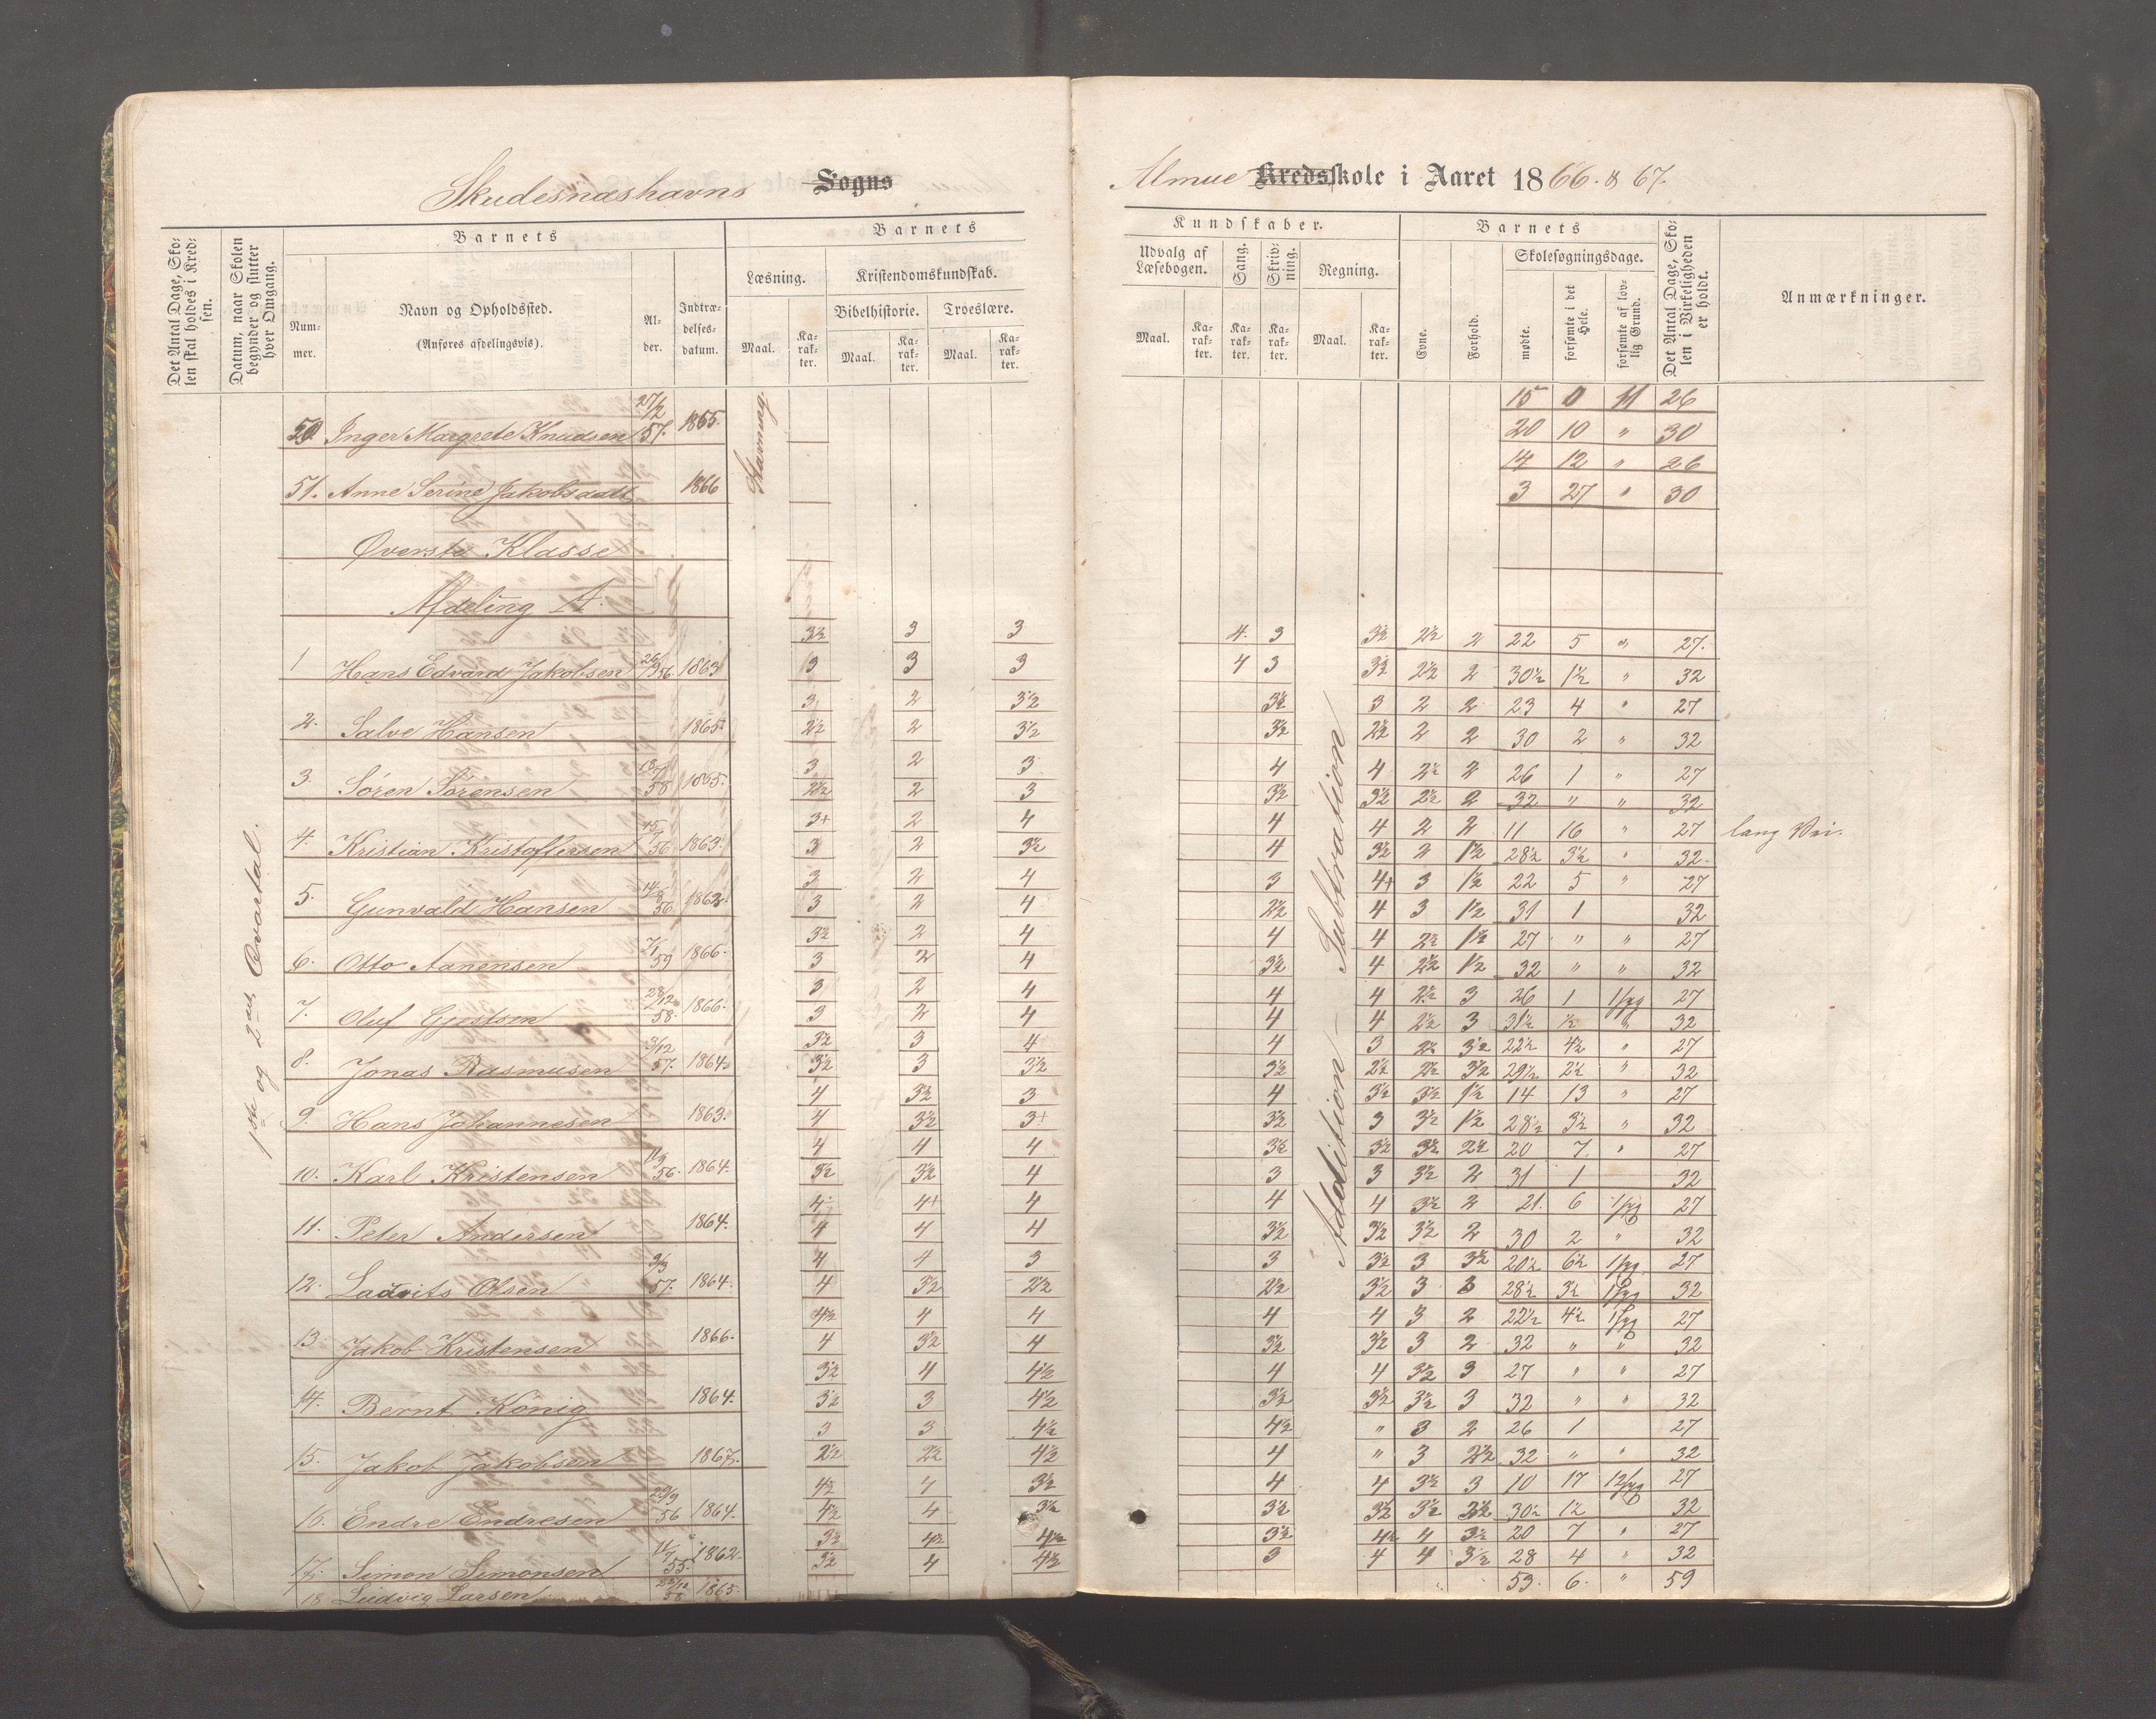 Skudesnæshavns Sogns
Almue Kredsskole i Aaret 1866. & 67.
Det Antal Dage, Skolen skal holdes i Kredsen.
Datum, naar Skolen begynder og slutter hver Omgang.
Barnets
Nummer.
Navn og Opholdssted.
(Anføres afdelingsvis).
Alder.
Indtrædelsesdatum.
Barnets
Læsning.
Kristendomskundskab.
Bibelhistorie.
Troeslære.
Maal.
Karakter.
Maal.
Karakter.
Maal.
Karakter.
Kundskaber.
Udvalg af Læsebogen.
Sang.
Skrivning.
Regning.
Maal.
Karakter.
Karakter.
Karakter.
Maal.
Karakter.
Barnets
Evne.
Forhold.
Skolesøgningsdage.
mødte.
forsømte i det Hele.
forsømte af lovlig Grund.
Det Antal Dage, Skolen i Virkeligheden er holdt.
Anmærkninger.
1ste og 2det Qvartal.
Stavning.
Addition – Subtraktion
15 0 11 26
50 Inger Margrete Knudsen 27/2 57. 1865.
20 10 " 30
14 12 " 26
51. Anne Serine Jakobsdatt 1866
3 27 " 30
Øverste Klasse
Afdeling A.
3½ 3 3 4. 3 3½ 2½ 2 22 5 " 27.
1 Hans Edvard Jakobsen 26/9 56. 1863 3 3 3 4 3 3½ 2½ 2 30½ 1½ " 32
3 2 3½ 3½ 3 2 2 23 4 " 27
2. Salve Hansen 1865. 2½ 2 3½ 3½ 2½ 2 2 30 2 " 32
3 2 3 4 4 2½ 2 26 1 " 27
3. Søren Sørensen 1865. 2½ 2 3 3½ 3½ 2½ 2 32 " " 32
3+ 2 4 4 4 2 2 11 16 " 27 lang Vei.
4. Kristian Kristoffersen 56 1863. 3 2 3½ 4 3½ 2 1½ 28½ 3½ " 32.
3 2 4 3 4+ 3 1½ 22 5 " 27
5. Gunvald Hansen 14/8 56. 1863. 3 2 4 2½ 4 3 1½ 31 1 32
3½ 2 4 4 4 2½ 1½ 27 " " 27
6. Otto Aanensen 7/1 59 1866. 3 2 4 3½ 4 2½ 1½ 32 " " 32
3 2 4 4 4 2½ 3 26 1 1/syg 27
7. Oluf Gjestsen 28/12 58. 1866. 3 2 4 4 4 2½ 3 31½ ½ " 32
3½ 3 4 4 3 2½ 3½ 22½ 4½ " 27
8. Jonas Rasmusen 3/12 57. 1864. 3½ 3 3½ 3½ 2½ 2½ 3½ 29½ 2½ " 32
4 3½ 3 4 3½ 3½ 1½ 14 13 " 27
9. Hans Johannesen 1863. 4 3½ 3+ 3½ 3 3½ 1½ 28½ 3½ " 32
4 4 4 3½ 3½ 3½ 2½ 20 7. " 27
10. Karl Kristensen 11/3 56. 1864. 3½ 3½ 4 3 3 3½ 2 31 1 32
4 4+ 4 4 4 3½ 2 21. 6 1/syg 27
11. Peter Andersen 1864. 4 4 4 3½ 3½ 3½ 2 30 2 " 32
4 4 3 3 3½ 3 3½ 20½ 6½ 1/syg 27
12. Ladvits Olsen 3/3 57. 1864. 4 3½ 2½ 2½ 3½ 3 3 28½ 3½ 1/syg 32
4½ 4 4 4 4 3 2 22½ 4½ 1/syg 27
13. Jakob Kristensen 1866. 4 3½ 4 3½ 3½ 3 2 32 " " 32
3½ 4 4½ 4 4 3½ 3 27 " " 27
14. Bernt König 1864. 3½ 3 4½ 3½ 3½ 3½ 3 32 " " 32
3 3 4½ 4½ " 3 2 26 1 27
15. Jakob Jakobsen 1867. 2½ 2½ 4½ 4 " 3 2½ 32 " " 32
4½ 4 3½ 4 4 3½ 3 10 17 12/syg 27
16. Endre Endresen 29/9 56 1864. 4½ 4 3½ 3½ 3½ 3½ 3½ 30½ 1½ 32
3½ 4½ 4½ 3½ 4½ 4 3½ 20 7 " 27
17. Simon Simonsen 11/7 55. 1862. 3½ 4 4½ 3 4 4 3½ 28 4 " 32
18 Ludvig Larsen 22/12 58 1865. 53. 6. " 59